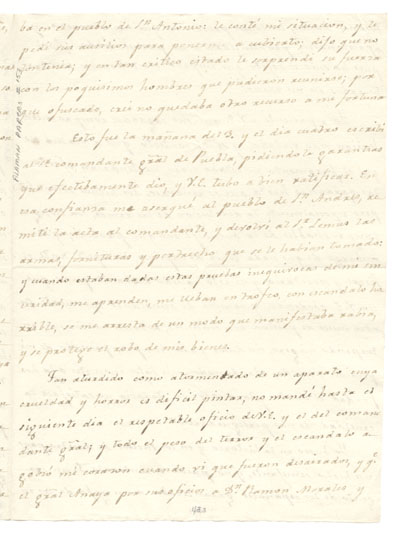 ba en el pueblo de Sn. Antonio: le conté mi situacion, y le
pedí sus auxilios para ponerme a cubierto; dijo que no
tenia; y en tan critico estado le sorprendé su fuerza
con los poquisimos hombres que pudieron reunirse; por
que ofuscado, creí no quedaba otro recurso a mi fortuna
Esto fue la mañana del 3, y el dia cuatro escribí
al Sr. comandante gral de Puebla, pidiendole garantias
que efectibamente dio, y V.E. tubo a bien ratificar. En
esa confianza me al pueblo de Sn. Andres, re-
mití la acta al comandante, y devolví al Sr. Lemus las
armas, monturas y pertrechos que se le habian tomado:
y cuando estaban dadas estas pruebas inequivocas de mi sin-
ceridad, me aprenden, me lleban en trofeo, con escandalo ho-
rrible, se me arresta de un modo que manifestaba rabia,
y se protege el robo de mis bienes.
Tan aturdido como atormentado de un aparato cuya
crueldad y horror es deficil pintar, no mandé hasta el
siguiente dia el respetable oficio de V.E. y el del coman
dante gral; y todo el peso del terror y el escandalo a
gobió mi corazon cuando vi que fueron desairados, y qe.
el gral Anaya por sus oficios a Dn. Ramon Morales y
483